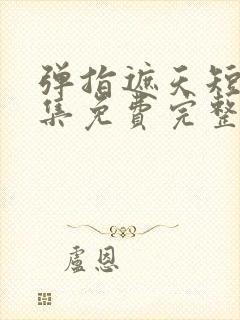 弹指遮天短
集免费完整
盧恩